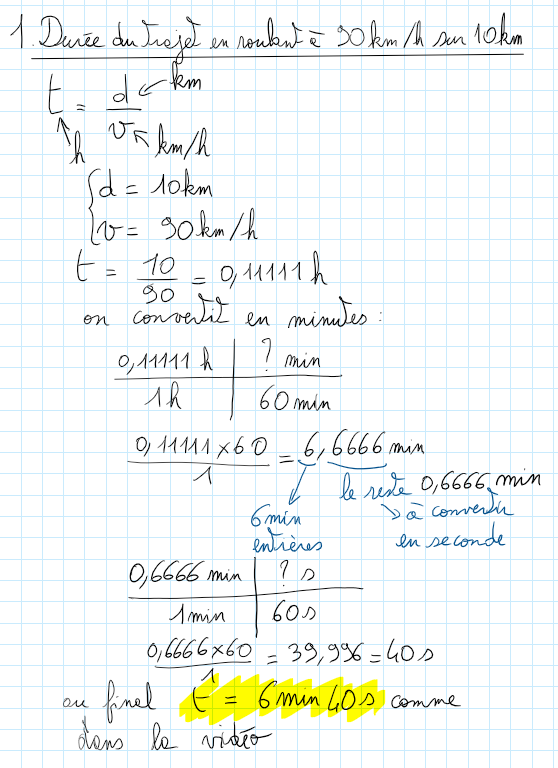 1. Durée du trajet en roulant à 90km/h sur 10km
t = d/v
km
h
km/h
{d = 10km
{v = 90km/h
t = 10/90 = 0,11111 h
on convertit en minutes :
0,11111 h | ? min
1h | 60min
0,11111×60/1 = 6,6666 min
le reste 0,6666 min
6min entières
à convertir
en seconde
0,6666 min | ? s
1min | 60s
0,6666×60/1 = 39,996 = 40s
au final t = 6min 40s comme
dans la vidéo